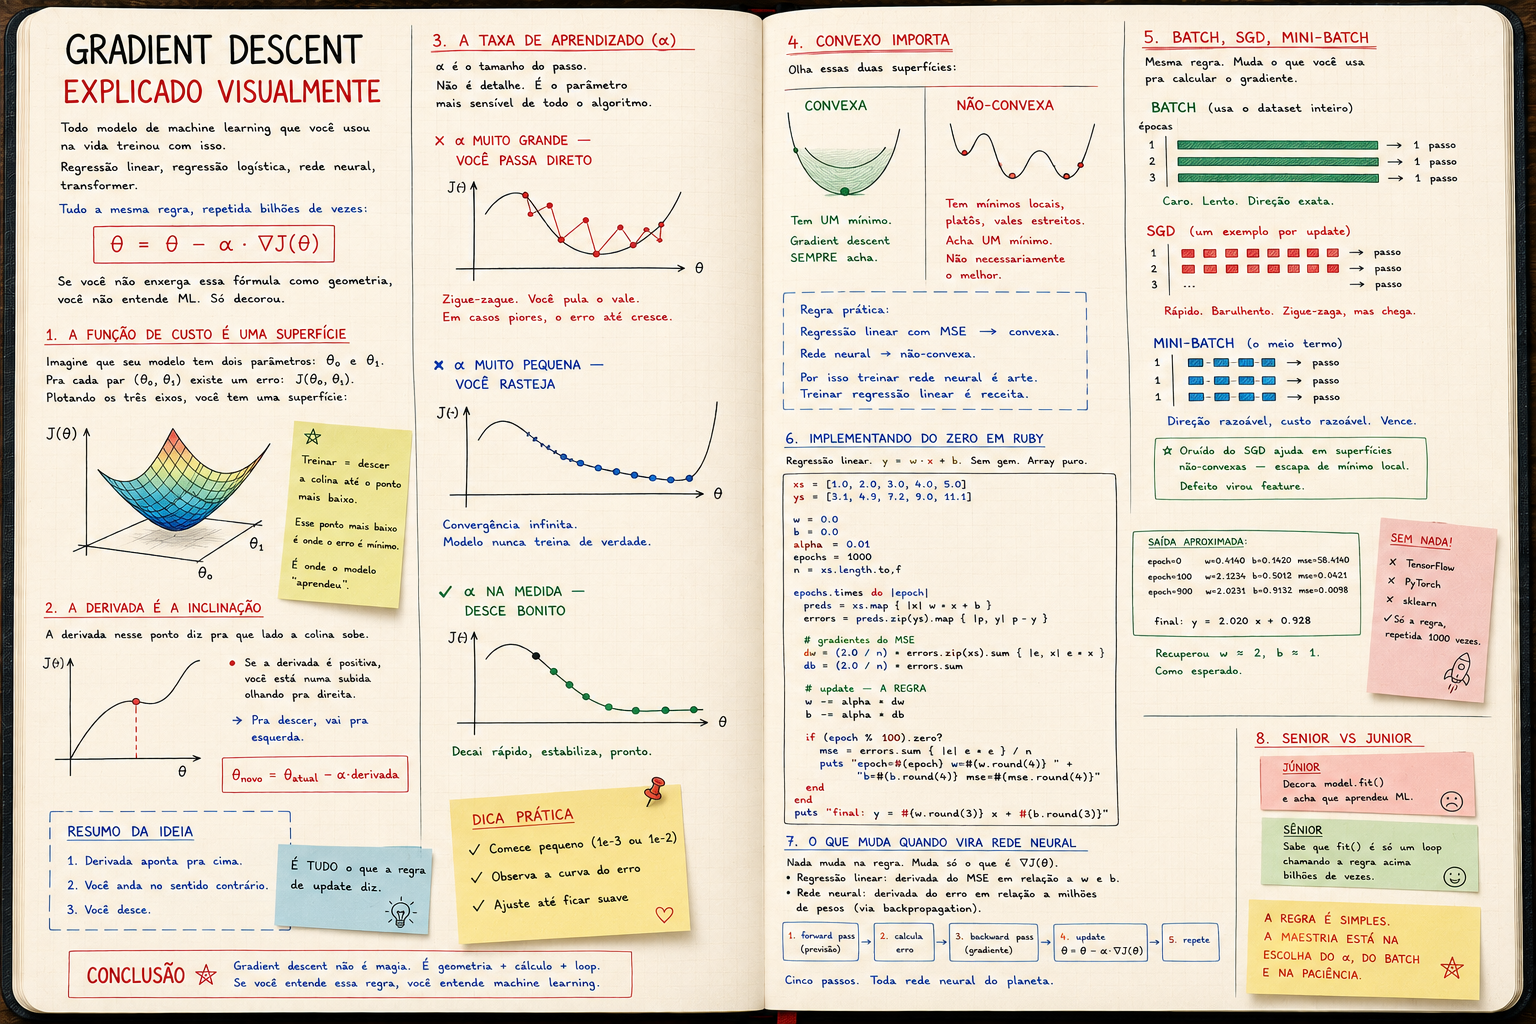 GRADIENT DESCENT
EXPLICADO VISUALMENTE
Todo modelo de machine learning que você usou
na vida treinou com isso.
Regressão linear, regressão logística, rede neural,
transformer.
Tudo a mesma regra, repetida bilhões de vezes:
θ = θ − α · ∇J(θ)
Se você não enxerga essa fórmula como geometria,
você não entende ML. Só decorou.
1. A FUNÇÃO DE CUSTO É UMA SUPERFÍCIE
Imagine que seu modelo tem dois parâmetros: θ₀ e θ₁.
Pra cada par (θ₀, θ₁) existe um erro: J(θ₀, θ₁).
Plotando os três eixos, você tem uma superfície:
J(θ)
θ₁
θ₀
☆
Treinar = descer
a colina até o ponto
mais baixo.
Esse ponto mais baixo
é onde o erro é mínimo.
É onde o modelo
"aprendeu".
2. A DERIVADA É A INCLINAÇÃO
A derivada nesse ponto diz pra que lado a colina sobe.
J(θ)
θ
• Se a derivada é positiva,
você está numa subida
olhando pra direita.
→ Pra descer, vai pra
esquerda.
θnovo = θatual − α·derivada
RESUMO DA IDEIA
1. Derivada aponta pra cima.
2. Você anda no sentido contrário.
3. Você desce.
É TUDO o que a regra
de update diz.
3. A TAXA DE APRENDIZADO (α)
α é o tamanho do passo.
Não é detalhe. É o parâmetro
mais sensível de todo o algoritmo.
✗ α MUITO GRANDE —
VOCÊ PASSA DIRETO
J(θ)
θ
Zigue-zague. Você pula o vale.
Em casos piores, o erro até cresce.
✗ α MUITO PEQUENA —
VOCÊ RASTEJA
J(-)
θ
Convergência infinita.
Modelo nunca treina de verdade.
✓ α NA MEDIDA —
DESCE BONITO
J(θ)
θ
Decai rápido, estabiliza, pronto.
DICA PRÁTICA
✓ Comece pequeno (1e-3 ou 1e-2)
✓ Observa a curva do erro
✓ Ajuste até ficar suave
CONCLUSÃO ☆
Gradient descent não é magia. É geometria + cálculo + loop.
Se você entende essa regra, você entende machine learning.
4. CONVEXO IMPORTA
Olha essas duas superfícies:
CONVEXA
Tem UM mínimo.
Gradient descent
SEMPRE acha.
NÃO-CONVEXA
Tem mínimos locais,
platôs, vales estreitos.
Acha UM mínimo.
Não necessariamente
o melhor.
Regra prática:
Regressão linear com MSE → convexa.
Rede neural → não-convexa.
Por isso treinar rede neural é arte.
Treinar regressão linear é receita.
6. IMPLEMENTANDO DO ZERO EM RUBY
Regressão linear. y = w·x + b. Sem gem. Array puro.
xs = [1.0, 2.0, 3.0, 4.0, 5.0]
ys = [3.1, 4.9, 7.2, 9.0, 11.1]
w = 0.0
b = 0.0
alpha = 0.01
epochs = 1000
n = xs.length.to,f
epochs.times do |epoch|
preds = xs.map { |x| w * x + b }
errors = preds.zip(ys).map { |p, y| p - y }
# gradientes do MSE
dw = (2.0 / n) * errors.zip(xs).sum { |e, x| e * x }
db = (2.0 / n) * errors.sum
# update — A REGRA
w -= alpha * dw
b -= alpha * db
if (epoch % 100).zero?
mse = errors.sum { |e| e * e } / n
puts "epoch=#{epoch} w=#{w.round(4)} " +
"b=#{b.round(4)} mse=#{mse.round(4)}"
end
end
puts "final: y = #{w.round(3)} x + #{b.round(3)}"
7. O QUE MUDA QUANDO VIRA REDE NEURAL
Nada muda na regra. Muda só o que é ∇J(θ).
• Regressão linear: derivada do MSE em relação a w e b.
• Rede neural: derivada do erro em relação a milhões
de pesos (via backpropagation).
1. forward pass
(previsão)
→
2. calcula
erro
→
3. backward pass
(gradiente)
→
4. update
θ = θ − α·∇J(θ)
→
5. repete
Cinco passos. Toda rede neural do planeta.
5. BATCH, SGD, MINI-BATCH
Mesma regra. Muda o que você usa
pra calcular o gradiente.
BATCH (usa o dataset inteiro)
épocas
1 → 1 passo
2 → 1 passo
3 → 1 passo
Caro. Lento. Direção exata.
SGD (um exemplo por update)
1 → passo
2 → passo
3 ... → passo
Rápido. Barulhento. Zigue-zaga, mas chega.
MINI-BATCH (o meio termo)
1 → passo
1 → passo
1 → passo
Direção razoável, custo razoável. Vence.
☆ Oruído do SGD ajuda em superfícies
não-convexas — escapa de mínimo local.
Defeito virou feature.
SAÍDA APROXIMADA:
epoch=0 w=0.4140 b=0.1420 mse=58.4140
epoch=100 w=2.1234 b=0.5012 mse=0.0421
epoch=900 w=2.0231 b=0.9132 mse=0.0098
final: y = 2.020 x + 0.928
Recuperou w ≈ 2, b ≈ 1.
Como esperado.
SEM NADA!
✗ TensorFlow
✗ PyTorch
✗ sklearn
✓Só a regra,
repetida 1000 vezes.
8. SENIOR VS JUNIOR
JÚNIOR
Decora model.fit()
e acha que aprendeu ML.
SÊNIOR
Sabe que fit() é só um loop
chamando a regra acima
bilhões de vezes.
A REGRA É SIMPLES.
A MAESTRIA ESTÁ NA
ESCOLHA DO α, DO BATCH
E NA PACIÊNCIA.